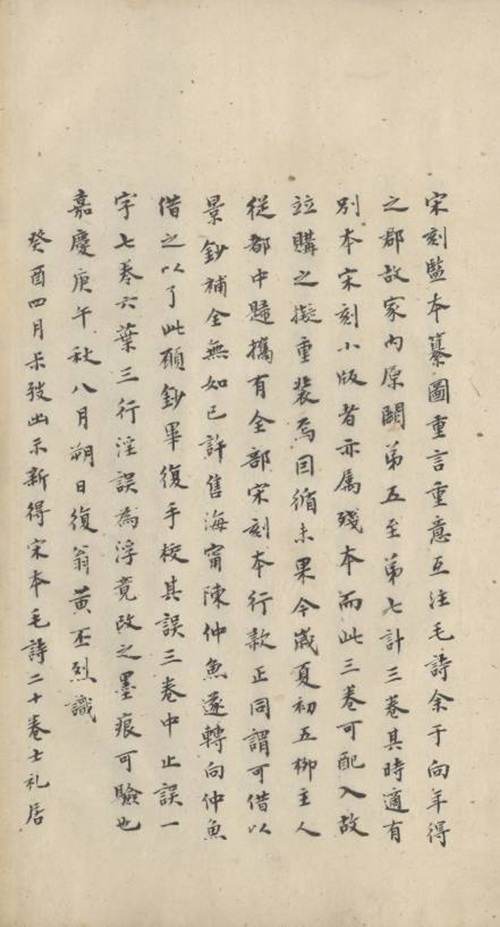 宋刻監本纂圖重言重意互注毛詩余于向年得
之郡故家內原闕弟五至弟七計三卷其時適有
別本宋刻小版者亦属殘本而此三卷可配入故
竝購之擬重裝焉因循未果今歲夏初五柳主人
從都中歸攜有全部宋刻本行款正同謂可借以
景鈔補全無如已許售海甯陳仲魚遂轉向仲魚
借之以了此願鈔畢復手校其誤三卷中止誤一
字七卷六葉三行淫誤為浮竟改之墨痕可驗也
嘉慶庚午秋八月朔日復翁黃丕烈識
癸酉四月朱發出示新得宋本毛詩二十卷士礼居